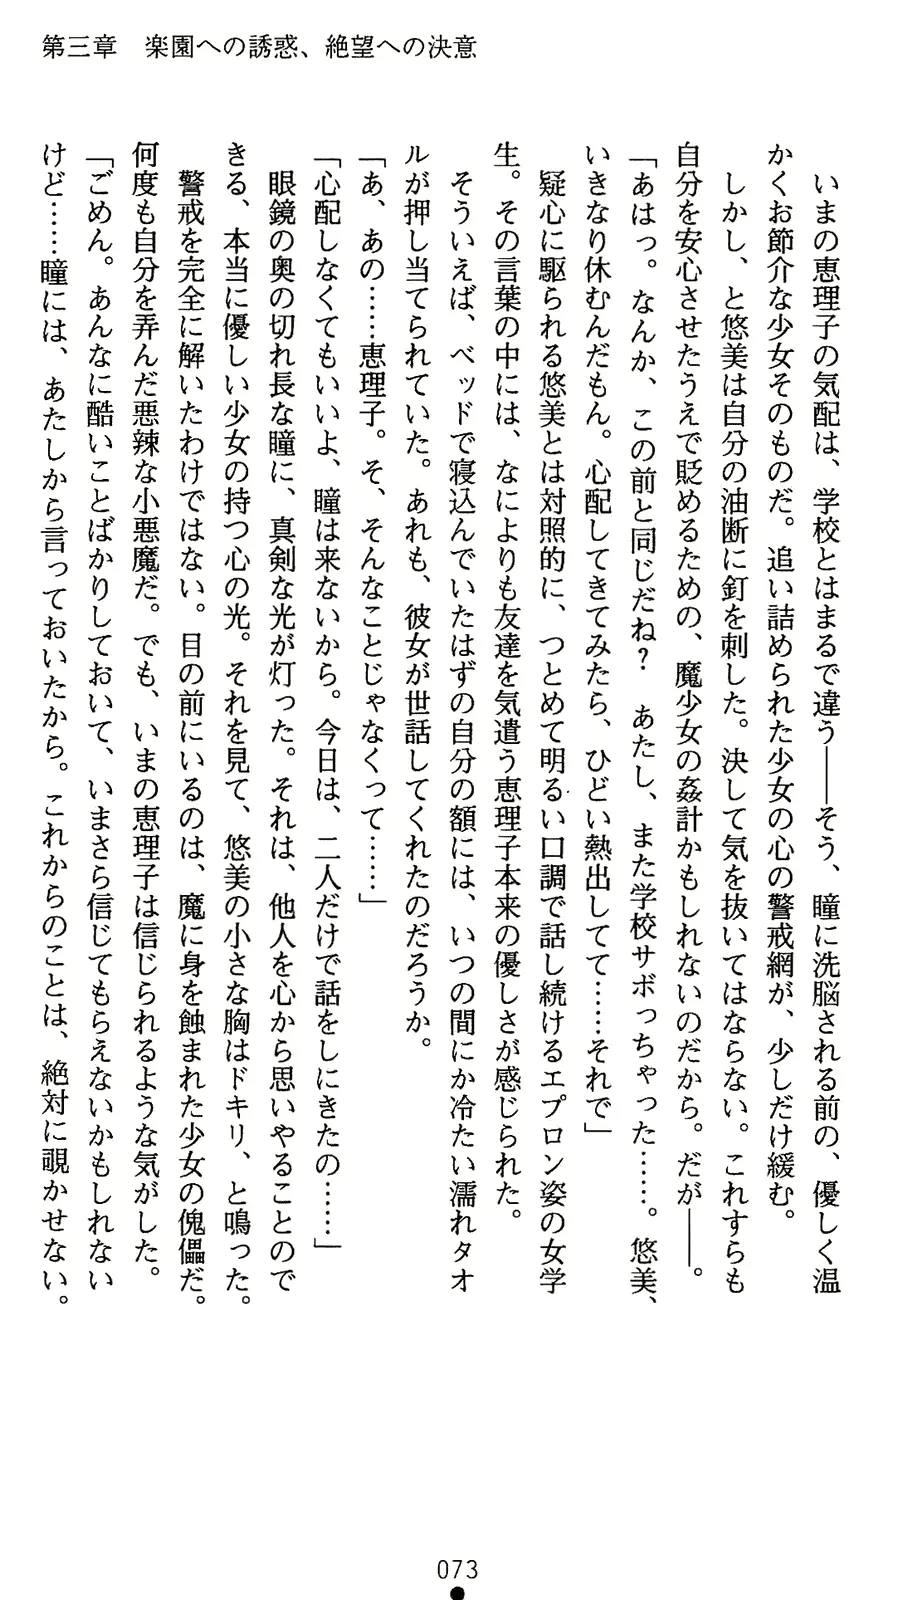 第三章　楽園への誘惑、絶望への決意
　いまの恵理子の気配は、学校とはまるで違う――そう、瞳に洗脳される前の、優しく温
かくお節介な少女そのものだ。追い詰められた少女の心の警戒網が、少しだけ緩む。
　しかし、と悠美は自分の油断に釘を刺した。決して気を抜いてはならない。これすらも
自分を安心させたうえで貶めるための、魔少女の姦計かもしれないのだから。だが――。
「あはっ。なんか、この前と同じだね？　あたし、また学校サボっちゃった……。悠美、
いきなり休むんだもん。心配してきてみたら、ひどい熱出してて……それで」
　疑心に駆られる悠美とは対照的に、つとめて明るい口調で話し続けるエプロン姿の女学
生。その言葉の中には、なによりも友達を気遣う恵理子本来の優しさが感じられた。
　そういえば、ベッドで寝込んでいたはずの自分の額には、いつの間にか冷たい濡れタオ
ルが押し当てられていた。あれも、彼女が世話してくれたのだろうか。
「あ、あの……恵理子。そ、そんなことじゃなくって……」
「心配しなくてもいいよ、瞳は来ないから。今日は、二人だけで話をしにきたの……」
　眼鏡の奥の切れ長な瞳に、真剣な光が灯った。それは、他人を心から思いやることので
きる、本当に優しい少女の持つ心の光。それを見て、悠美の小さな胸はドキリ、と鳴った。
　警戒を完全に解いたわけではない。目の前にいるのは、魔に身を蝕まれた少女の傀儡だ。
何度も自分を弄んだ悪辣な小悪魔だ。でも、いまの恵理子は信じられるような気がした。
「ごめん。あんなに酷いことばかりしておいて、いまさら信じてもらえないかもしれない
けど……瞳には、あたしから言っておいたから。これからのことは、絶対に覗かせない。
073